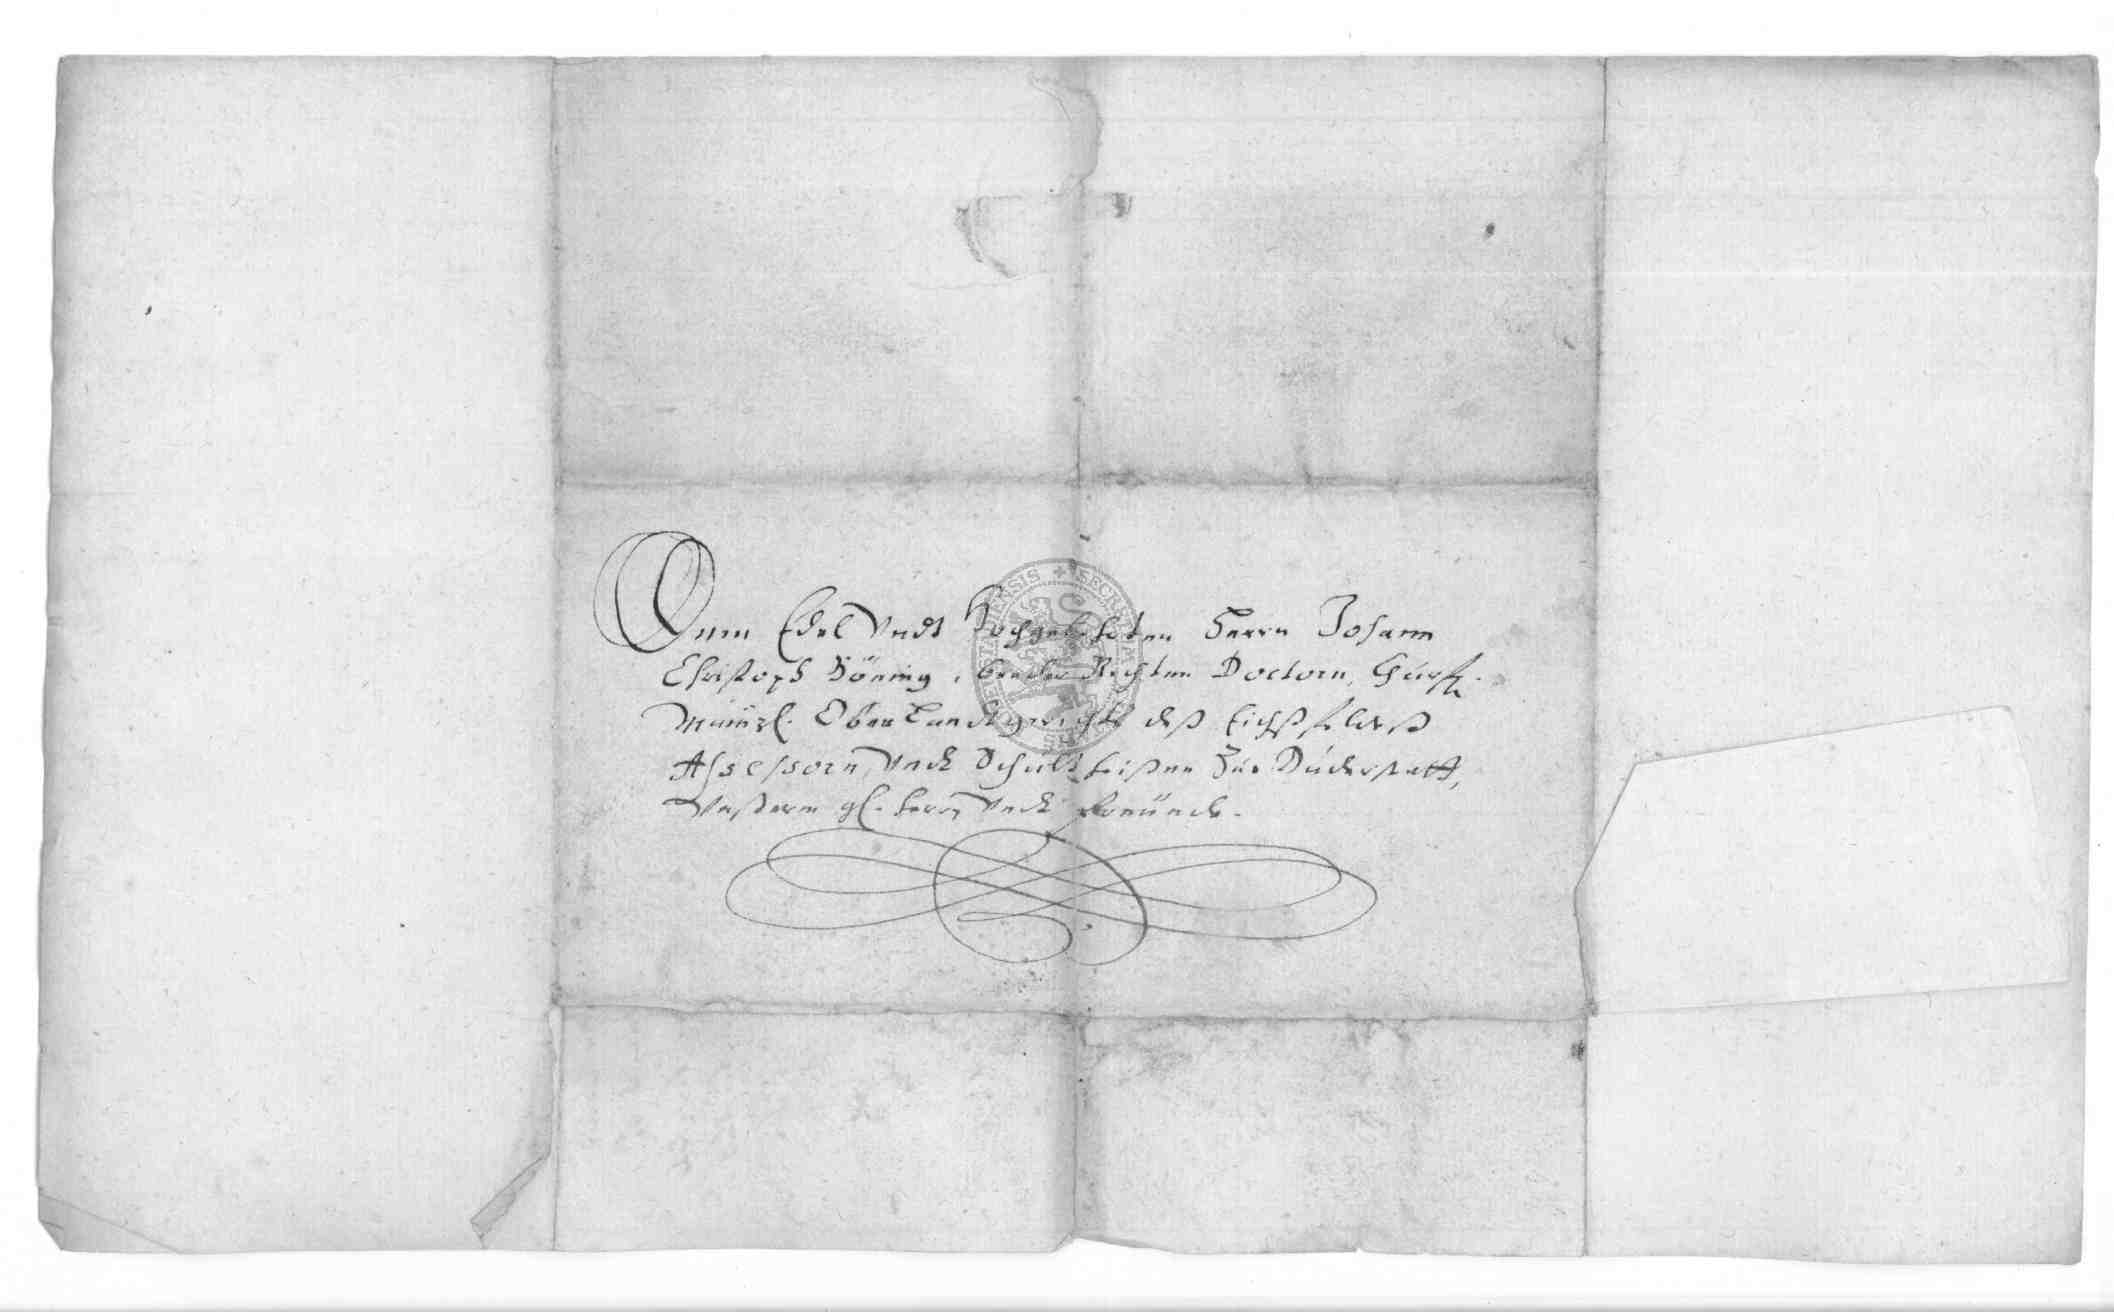 Dem Edel Undt Hochgelehrten Herrn Johann
Christoph Böning, beeder Rechten Doctorn, Churf.
Maintzl. Ober Landtgerichts deß Eichßfeldeß
Assessorn, Undt Schultheißen Zue Duderstatt,
Unßerm gl. Herrn Undt Freünde.